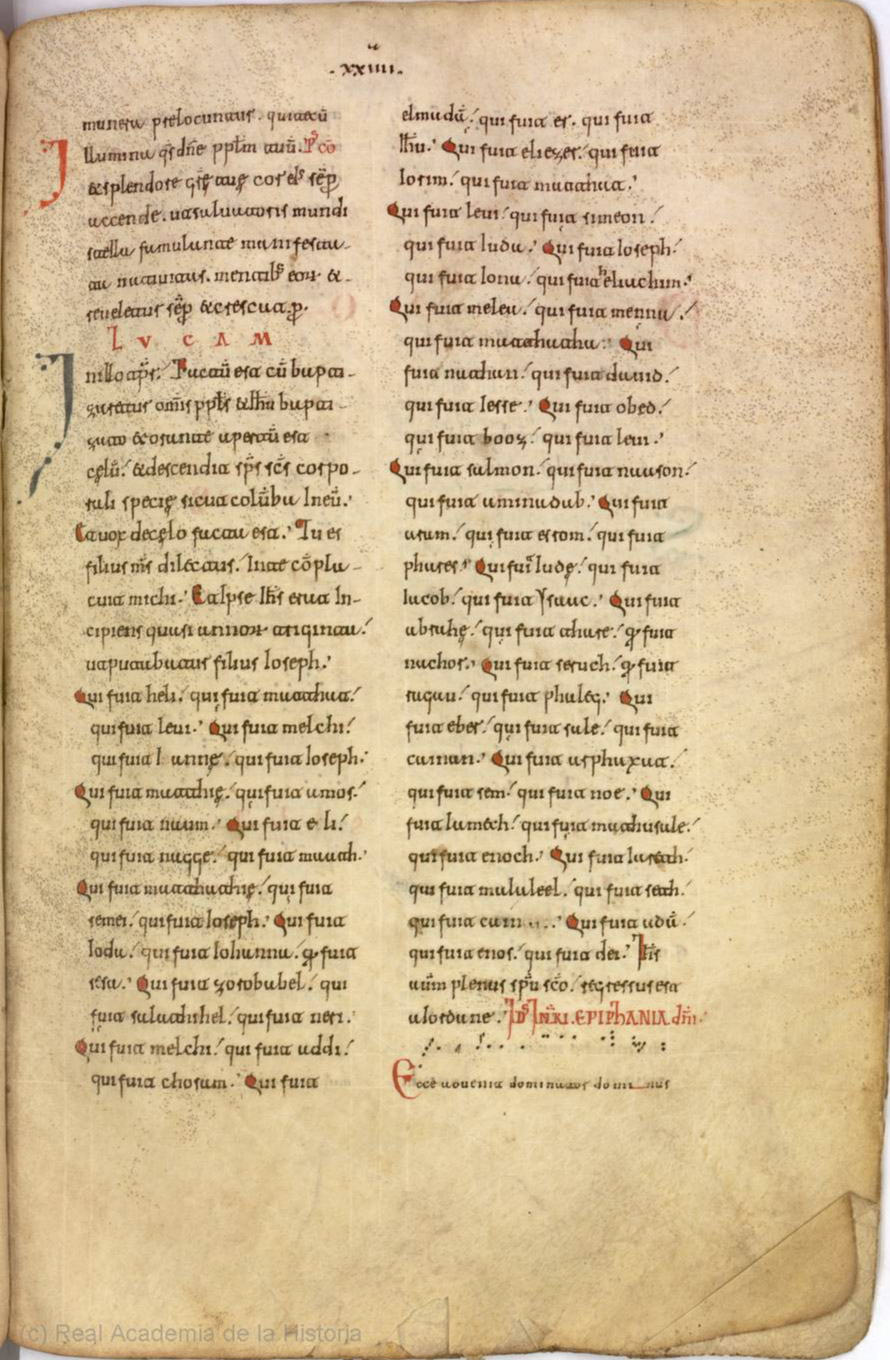 . xxiiii .
munera prelocuntur. quia
Illumina qs dñe pplm tuū. Pco
& splendore grę tuę cor eis sēp
accende. ut saluatoris mundi
stella famulante manifesta-
ta natiuitas. mentibs eor &
reueletur sēp & crescat. p.
LVCAM
In illo tpr. Factū est cū bapti-
zaretur omis ppls & Ihu bapti-
zato & orante apertū est
cęlū. & descendit sps scs corpo-
rali specię sicut colūba in eū.
Et uox de cęlo facta est. Tu es
filius ms dilectus. In te cōpla-
cuit michi. Et ipse Ihs erat in-
cipiens quasi annor triginta.
ut putabatur filius Ioseph.
Qui fuit heli. qui fuit matthat.
qui fuit leui. Qui fuit melchi.
qui fuit iannę. qui fuit Ioseph.
Qui fuit matthię. qui fuit amos.
qui fuit naum. Qui fuit e li.
qui fuit nagge. qui fuit maath.
Qui fuit matthathię. qui fuit
semei. qui fuit Ioseph. Qui fuit
Ioda. qui fuit Iohanna. q fuit
resa. Qui fuit zorobabel. qui
fuit salathihel. qui fuit neri.
Qui fuit melchi. qui fuit addi.
qui fuit chosam. Qui fuit
elmadā. qui fuit er. qui fuit
Ihu. Qui fuit eliezer. qui fuit
Iorim. qui fuit matthat.
Qui fuit leui. qui fuit simeon.
qui fuit Iuda. Qui fuit Ioseph.
qui fuit Iona. qui fuit heliachim.
Qui fuit melea. qui fuit menna.
qui fuit matthatha. Qui
fuit nathan. qui fuit dauid.
qui fuit Iesse. Qui fuit obed.
qui fuit booz. qui fuit leui.
Qui fuit salmon. qui fuit naason.
qui fuit aminadab. Qui fuit
aram. qui fuit esrom. qui fuit
phares. Qui fuit Iudę. qui fuit
Iacob. qui fuit Ysaac. Qui fuit
abrahę. qui fuit thare. q fuit
nachor. Qui fuit seruch. q fuit
ragau. qui fuit phaleg. Qui
fuit eber. qui fuit sale. qui fuit
cainan. Qui fuit arphaxat.
qui fuit sem. qui fuit noe. Qui
fuit lamech. qui fuit mathusale.
qui fuit enoch. Qui fuit Iareth.
qui fuit malaleel. qui fuit seth.
qui fuit cain... Qui fuit adā.
qui fuit enos. qui fuit dei. Ihs
autm plenus spu sco. regressus est
a Iordane. EPIPHANIA dni.
Ecce aduenit dominator dominus
(c) Real Academia de la Historia